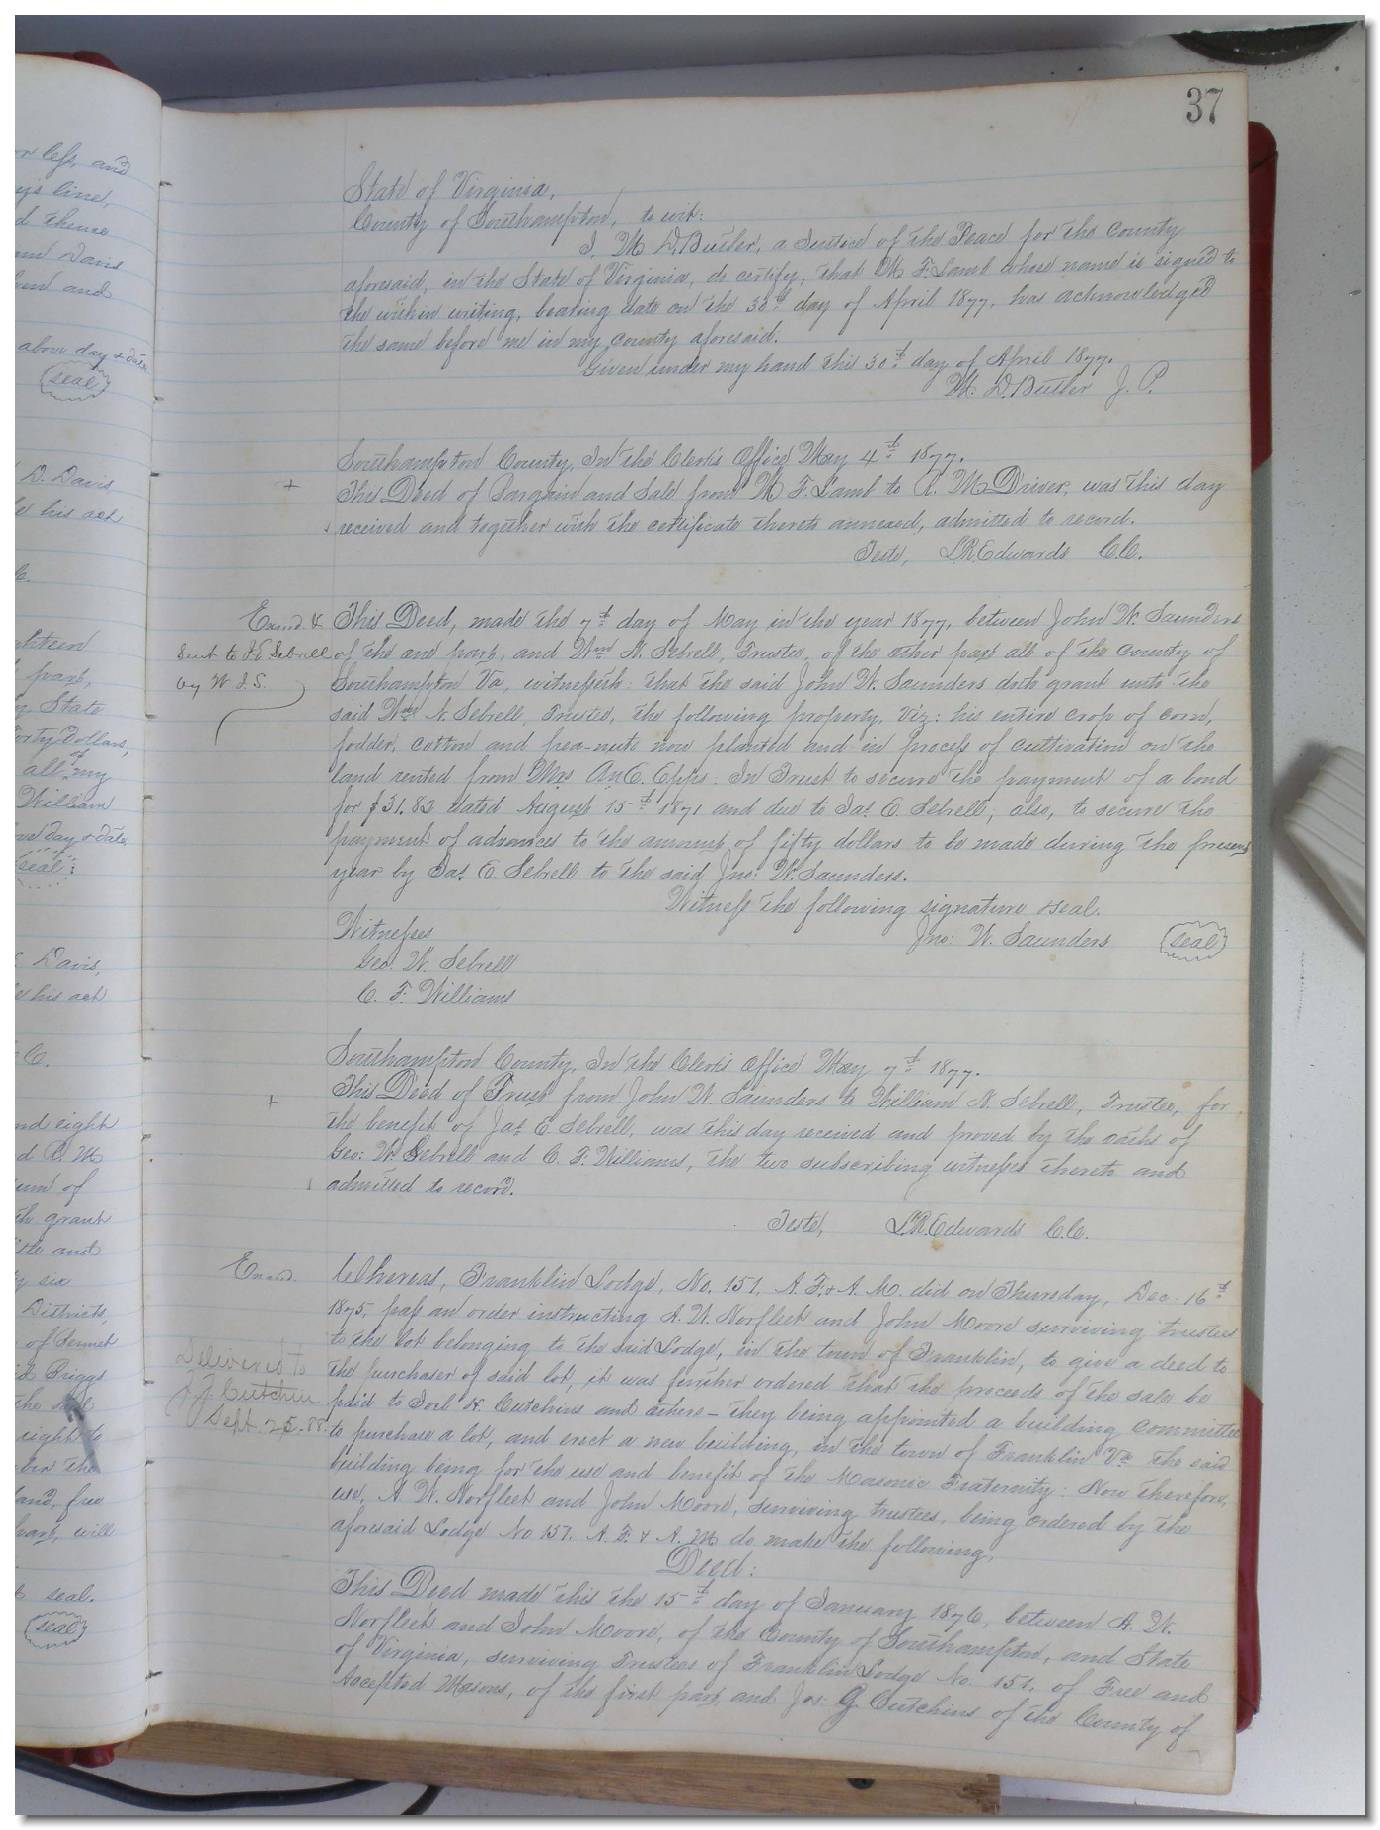 37
State of Virginia,
County of Southampton, to wit:
I, M. D. Butler, a Justice of the Peace for the County
aforesaid, in the State of Virginia, do certify, that M F. Lamb whose name is signed to
the within writing, bearing date on the 30t day of April 1877, has acknowledged
the same before me in my county aforesaid.
Given under my hand this 30t day of April 1877.
M. D. Butler J. P.
Southampton County, In the Clerk's Office May 4t 1877.
This Deed of Bargain and Sale from M F. Lamb to R. M Driver, was this day
received and together with the certificate thereto annexed, admitted to record.
Teste, L.R. Edwards C.C.
Exmd. & This Deed, made the 7t day of May in the year 1877, between John W. Saunders
Sent to J E Sebrell of the one part, and Wm N. Sebrell, Trustee, of the other part all of the County of
by W J. S. Southampton Va, witnesseth: that the said John W. Saunders doth grant unto the
said Wm N. Sebrell, Trustee, the following property, Viz: his entire crop of corn,
fodder, cotton and pea-nuts now planted and in process of cultivation on the
land rented from Mrs An. E. Epps. In Trust to secure the payment of a bond
for $31.83 dated August 15t 1871 and due to Jas. E. Sebrell, also, to secure the
payment of advances to the amount of fifty dollars to be made during the present
year by Jas. E. Sebrell to the said Jno: W. Saunders.
Witness the following signature & seal.
Witnesses Jno: W. Saunders (seal)
Geo. W. Sebrell
C. F. Williams
Southampton County, In the Clerk's Office May 7t 1877.
This Deed of Trust from John W. Saunders to William N. Sebrell, Trustee, for
the benefit of Jas. E Sebrell, was this day received and proved by the oaths of
Geo: W. Sebrell and C. F. Williams, the two subscribing witnesses thereto and
admitted to record.
Teste, L.R. Edwards C.C.
Exmd. Whereas, Franklin Lodge, No. 151, A. F. & A. M. did on Thursday, Dec. 16t
1875, pass an order instructing A. W. Norfleet and John Moore surviving trustees
to the lot belonging to the said Lodge, in the town of Franklin, to give a deed to
the purchaser of said lot, it was further ordered that the proceeds of the sale be
paid to Joel H. Cutchins and others - they being appointed a building committee
to purchase a lot, and erect a new building, in the town of Franklin Va the said
building being for the use and benefit of the Masonic Fraternity: Now therefore,
we, A W. Norfleet and John Moore, surviving trustees, being ordered by the
aforesaid Lodge No 151. A. F. & A. M do make the following,
Delivered to
J J. Cutchin
Sept. 25. 88.
Deed:
This Deed made this the 15t day of January 1876, between A. W.
Norfleet and John Moore, of the County of Southampton, and State
of Virginia, surviving Trustees of Franklin Lodge No. 151, of Free and
Accepted Masons, of the first part, and Jos: G. Cutchins of the County of
or less, and
line,
d thence
Davis
and
above day & date
(seal)
D. Davis
his act
part,
State
forty Dollars,
all of my
William
day & date
(seal)
Davis,
his act
nd eight
d R. M
sum of
grant
and
six
Districts,
of Bennet
Briggs
the said
right to
the
land, free
part, will
seal.
(seal)